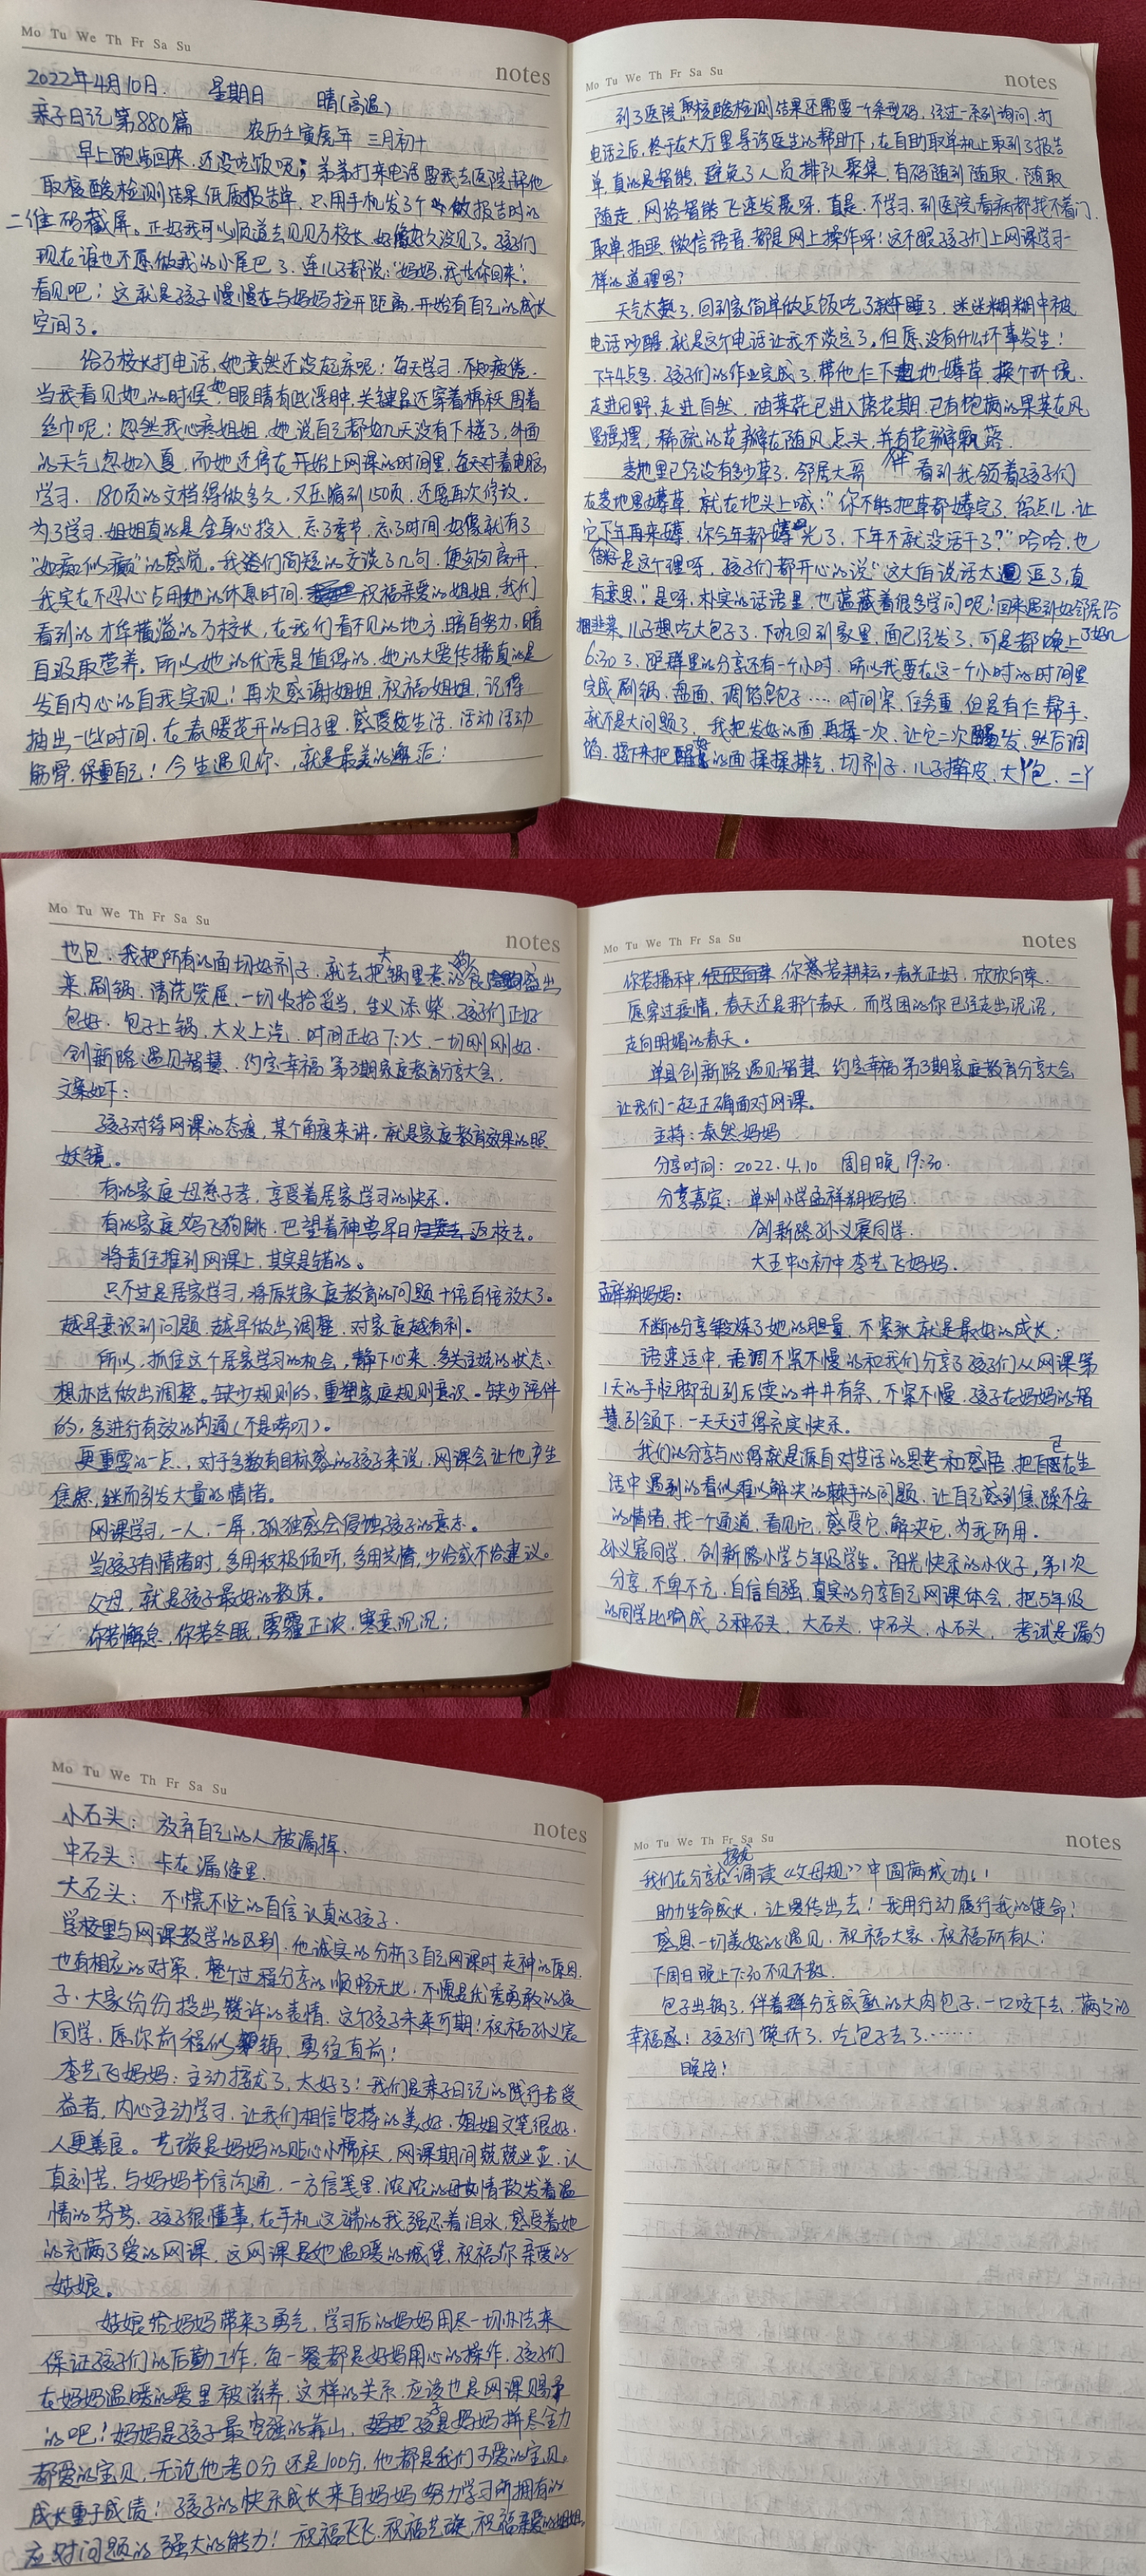 Mo Tu We Th Fr Sa Su
notes
2022年4月10日. 星期日 晴(高温)
亲子日记第880篇 农历壬寅虎年 三月初十
早上跑步回来,还没吃饭呢;弟弟打来电话要我去医院帮他
取核酸检测结果纸质报告单,只用手机发了个做报告时的
二维码截屏。正好我可以顺道去见见万校长,好像好久没见了。孩子们
现在谁也不愿做我的小尾巴了,连儿子都说:“妈妈,我等你回来.”
看见吧!这就是孩子慢慢在与妈妈拉开距离,开始有自己的成长
空间了。
给万校长打电话,她竟然还没起床呢!每天学习,不知疲倦.
当我看见她的时候她眼睛有些浮肿,关键是还穿着棉袄,围着
丝巾呢!忽然我心疼姐姐,她说自己都好几天没有下楼了,外面
的天气忽如入夏,而她还停在开始上网课的时间里,每天对着电脑
学习,180页的文档得做多久,又压缩到150页,还要再次修改.
为了学习,姐姐真的是全身心投入,忘了季节,忘了时间,好像就有了
“如痴似癫”的感觉。我们简短的交谈了几句,便匆匆离开.
我实在不忍心占用她的休息时间.祝福亲爱的姐姐,我们
看到的才华横溢的万校长,在我们看不见的地方,暗自努力,暗
自汲取营养。所以她的优秀是值得的,她的大爱传播真的是
发自内心的自我实现!再次感谢姐姐,祝福姐姐,记得
抽出一些时间,在春暖花开的日子里,感受生活,活动活动
筋骨,保重自己!今生遇见你,就是最美的邂逅!
Mo Tu We Th Fr Sa Su
notes
到了医院,取核酸检测结果还需要一个条型码,经过一系列询问,打
电话之后,终于在大厅里导诊医生的帮助下,在自助取单机上取到了报告
单,真的是智能,避免了人员排队聚集,有码随到随取,随取
随走,网络智能飞速发展呀,真是,不学习,到医院看病都找不着门.
取单,拍照,微信语音,都是网上操作呀!这不跟孩子们上网课学习一
样的道理吗?
天气太热了,回到家简单做点饭吃了就午睡了,迷迷糊糊中被
电话吵醒,就是这个电话让我不淡定了,但愿没有什么坏事发生!
下午4点多,孩子们的作业完成了,带他仨下地薅草,换个环境.
走进田野,走进自然,油菜花已进入落花期,已有饱满的果荚在风
里摇摆,稀疏的花瓣在随风点头,并有花瓣飘落.
麦地里已经没有多少草了,邻居大哥看到我领着孩子们
在麦地里薅草,就在地头上喊:“你不能把草都薅完了,留点儿,让
它下年再来薅,你今年都薅光了,下年不就没活干了?”哈哈,也
是这个理呀,孩子们都开心的说“这大伯说话太逗了,真
有意思.”是呀,朴实的话语里,也蕴藏着很多学问呢!回来遇到好邻居给
捆韭菜,儿子想吃大包子了,下班回到家里,面已经发了,可是都晚上
6:30了,距群里的分享还有一个小时,所以我要在这一个小时的时间里
完成刷锅,盘面,调馅包包子……时间紧,任务重,但是有仨帮手,
就不是大问题了,我把发好的面再揉一次,让它二次醒发,然后调
馅,接下来把醒的面揉揉排气,切剂子,儿子擀皮,大丫包,二丫
Mo Tu We Th Fr Sa Su
notes
也包,我把所有的面切好剂子,就去把大锅里煮的食盛出
来,刷锅,清洗笼屉,一切收拾妥当,生火添柴,孩子们正好
包好,包子上锅,大火上汽,时间正好7:25,一切刚刚好.
创新路遇见智慧、约定幸福第3期家庭教育分享大会.
文案如下:
孩子对待网课的态度,某个角度来讲,就是家庭教育效果的照
妖镜。
有的家庭母慈子孝,享受着居家学习的快乐.
有的家庭鸡飞狗跳,巴望着神兽早日返校去。
将责任推到网课上,其实是错的。
只不过是居家学习,将原先家庭教育的问题十倍百倍放大了。
越早意识到问题,越早做出调整,对家庭越有利。
所以,抓住这个居家学习的机会,静下心来,多关注娃的状态、
想办法做出调整。缺少规则的,重塑家庭规则意识。缺少陪伴
的,多进行有效的沟通(不是唠叨)。
更重要的一点,对于多数有目标感的孩子来说,网课会让他产生
焦虑,继而引发大量的情绪。
网课学习,一人,一屏,孤独感会侵蚀孩子的意志。
当孩子有情绪时,多用积极倾听,多用共情,少给或不给建议。
父母,就是孩子最好的教练。
你若懈怠,你若冬眠,雾霾正浓,寒意沉沉;
Mo Tu We Th Fr Sa Su
notes
你若播种,你若耕耘,春光正好,欣欣向荣.
愿穿过疫情,春天还是那个春天,而学团的你已经走出泥沼,
走向明媚的春天。
单县创新路遇见智慧、约定幸福第3期家庭教育分享大会
让我们一起正确面对网课。
主持:泰然妈妈
分享时间:2022.4.10 周日晚19:30.
分享嘉宾:单州小学孟祥朔妈妈.
创新路孙义宸同学.
大王中心初中李艺飞妈妈.
孟祥朔妈妈:
不断的分享锻炼了她的胆量,不紧张就是最好的成长!
语速适中,语调不紧不慢的和我们分享了孩子们从网课第
1天的手忙脚乱到后续的井井有条,不紧不慢,孩子在妈妈的智
慧引领下,一天天过得充实快乐。
我们的分享与心得就是源自对生活的思考和感悟,把自己在生
活中遇到的看似难以解决的棘手的问题,让自己感到焦躁不安
的情绪,找一个通道,看见它,感受它,解决它,为我所用.
孙义宸同学,创新路小学5年级学生。阳光快乐的小伙子,第1次
分享,不卑不亢,自信自强,真实的分享自己网课体会,把5年级
的同学比喻成了3种石头,大石头,中石头,小石头,考试是漏勺
Mo Tu We Th Fr Sa Su
notes
小石头:放弃自己的人被漏掉.
中石头:卡在漏缝里.
大石头:不慌不忙的自信认真的孩子.
学校里与网课教学的区别,他诚实的分析了自己网课时走神的原因,
也有相应的对策,整个过程分享的顺畅无比,不愧是优秀勇敢的孩
子,大家纷纷投出赞许的表情,这个孩子未来可期!祝福孙义宸
同学,愿你前程似锦,勇往直前!
李艺飞妈妈:主动接龙了,太好了!我们是亲子日记的践行者受
益者,内心主动学习,让我们相信坚持的美好,姐姐文笔很好,
人更善良。艺璇是妈妈的贴心小棉袄,网课期间兢兢业业,认
真刻苦,与妈妈书信沟通,一方信笺里,浓浓的母女情散发着温
情的芬芳,孩子很懂事,在手机这端的我强忍着泪水,感受着她
的充满了爱的网课,这网课是她温暖的城堡,祝福你亲爱的
姑娘。
姑娘给妈妈带来了勇气,学习后的妈妈用尽一切办法来
保证孩子们的后勤工作,每一餐都是好妈用心的操作,孩子们
在妈妈温暖的爱里被滋养,这样的关系,应该也是网课赐予
的吧!妈妈是孩子最坚强的靠山,孩子是妈妈拼尽全力
都爱的宝贝,无论他考0分还是100分,他都是我们可爱的宝贝。
成长重于成绩!孩子的快乐成长来自妈妈努力学习所拥有的
应对问题的强大的能力!祝福飞飞,祝福艺璇,祝福亲爱的姐姐
Mo Tu We Th Fr Sa Su
notes
我们在分享在接龙诵读《父母规》中圆满成功!!
助力生命成长,让爱传出去!我用行动履行我的使命!
感恩一切美好的遇见,祝福大家,祝福所有人!
下周日晚上7:30不见不散.
包子出锅了,伴着群分享成熟的大肉包子,一口咬下去,满满的
幸福感!孩子们馋坏了,吃包子去了……
晚安!